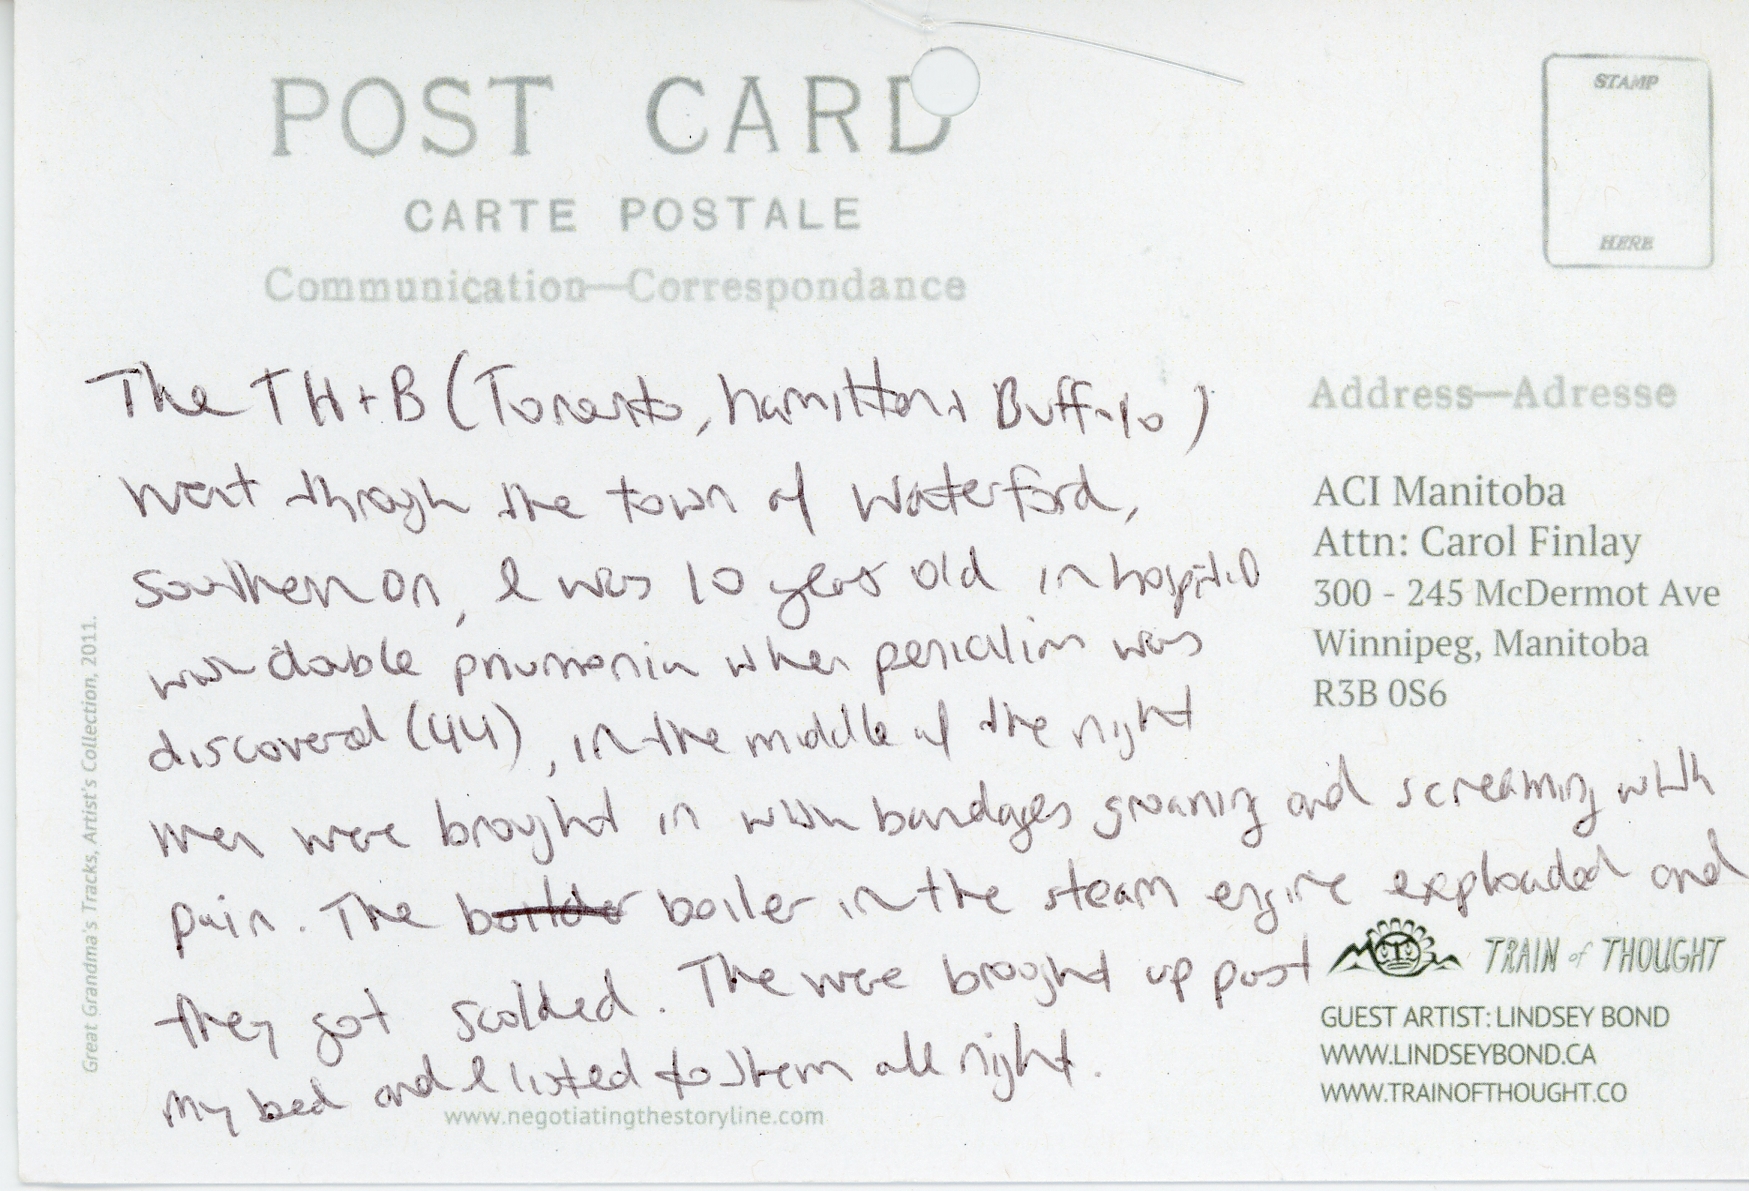 POST CARD
CARTE POSTALE
Communication—Correspondance
STAMP
HERE
The TH+B (Toronto, hamilton + Buffalo)
went through the town of Waterford,
Southern On, I was 10 years old in hospital
with double pnumonia when penicalim was
discovered (44), in the middle of the night
men were brought in with bandages groaning and screaming with
pain. The boiler in the steam engine exploaded and
they got scolded. The were brought up past
my bed and I listed to them all night.
Address—Adresse
ACI Manitoba
Attn: Carol Finlay
300 - 245 McDermot Ave
Winnipeg, Manitoba
R3B 0S6
TRAIN of THOUGHT
GUEST ARTIST: LINDSEY BOND
WWW.LINDSEYBOND.CA
WWW.TRAINOFTHOUGHT.CO
www.negotiatingthestoryline.com
Great Grandma's Tracks, Artist's Collection, 2011.